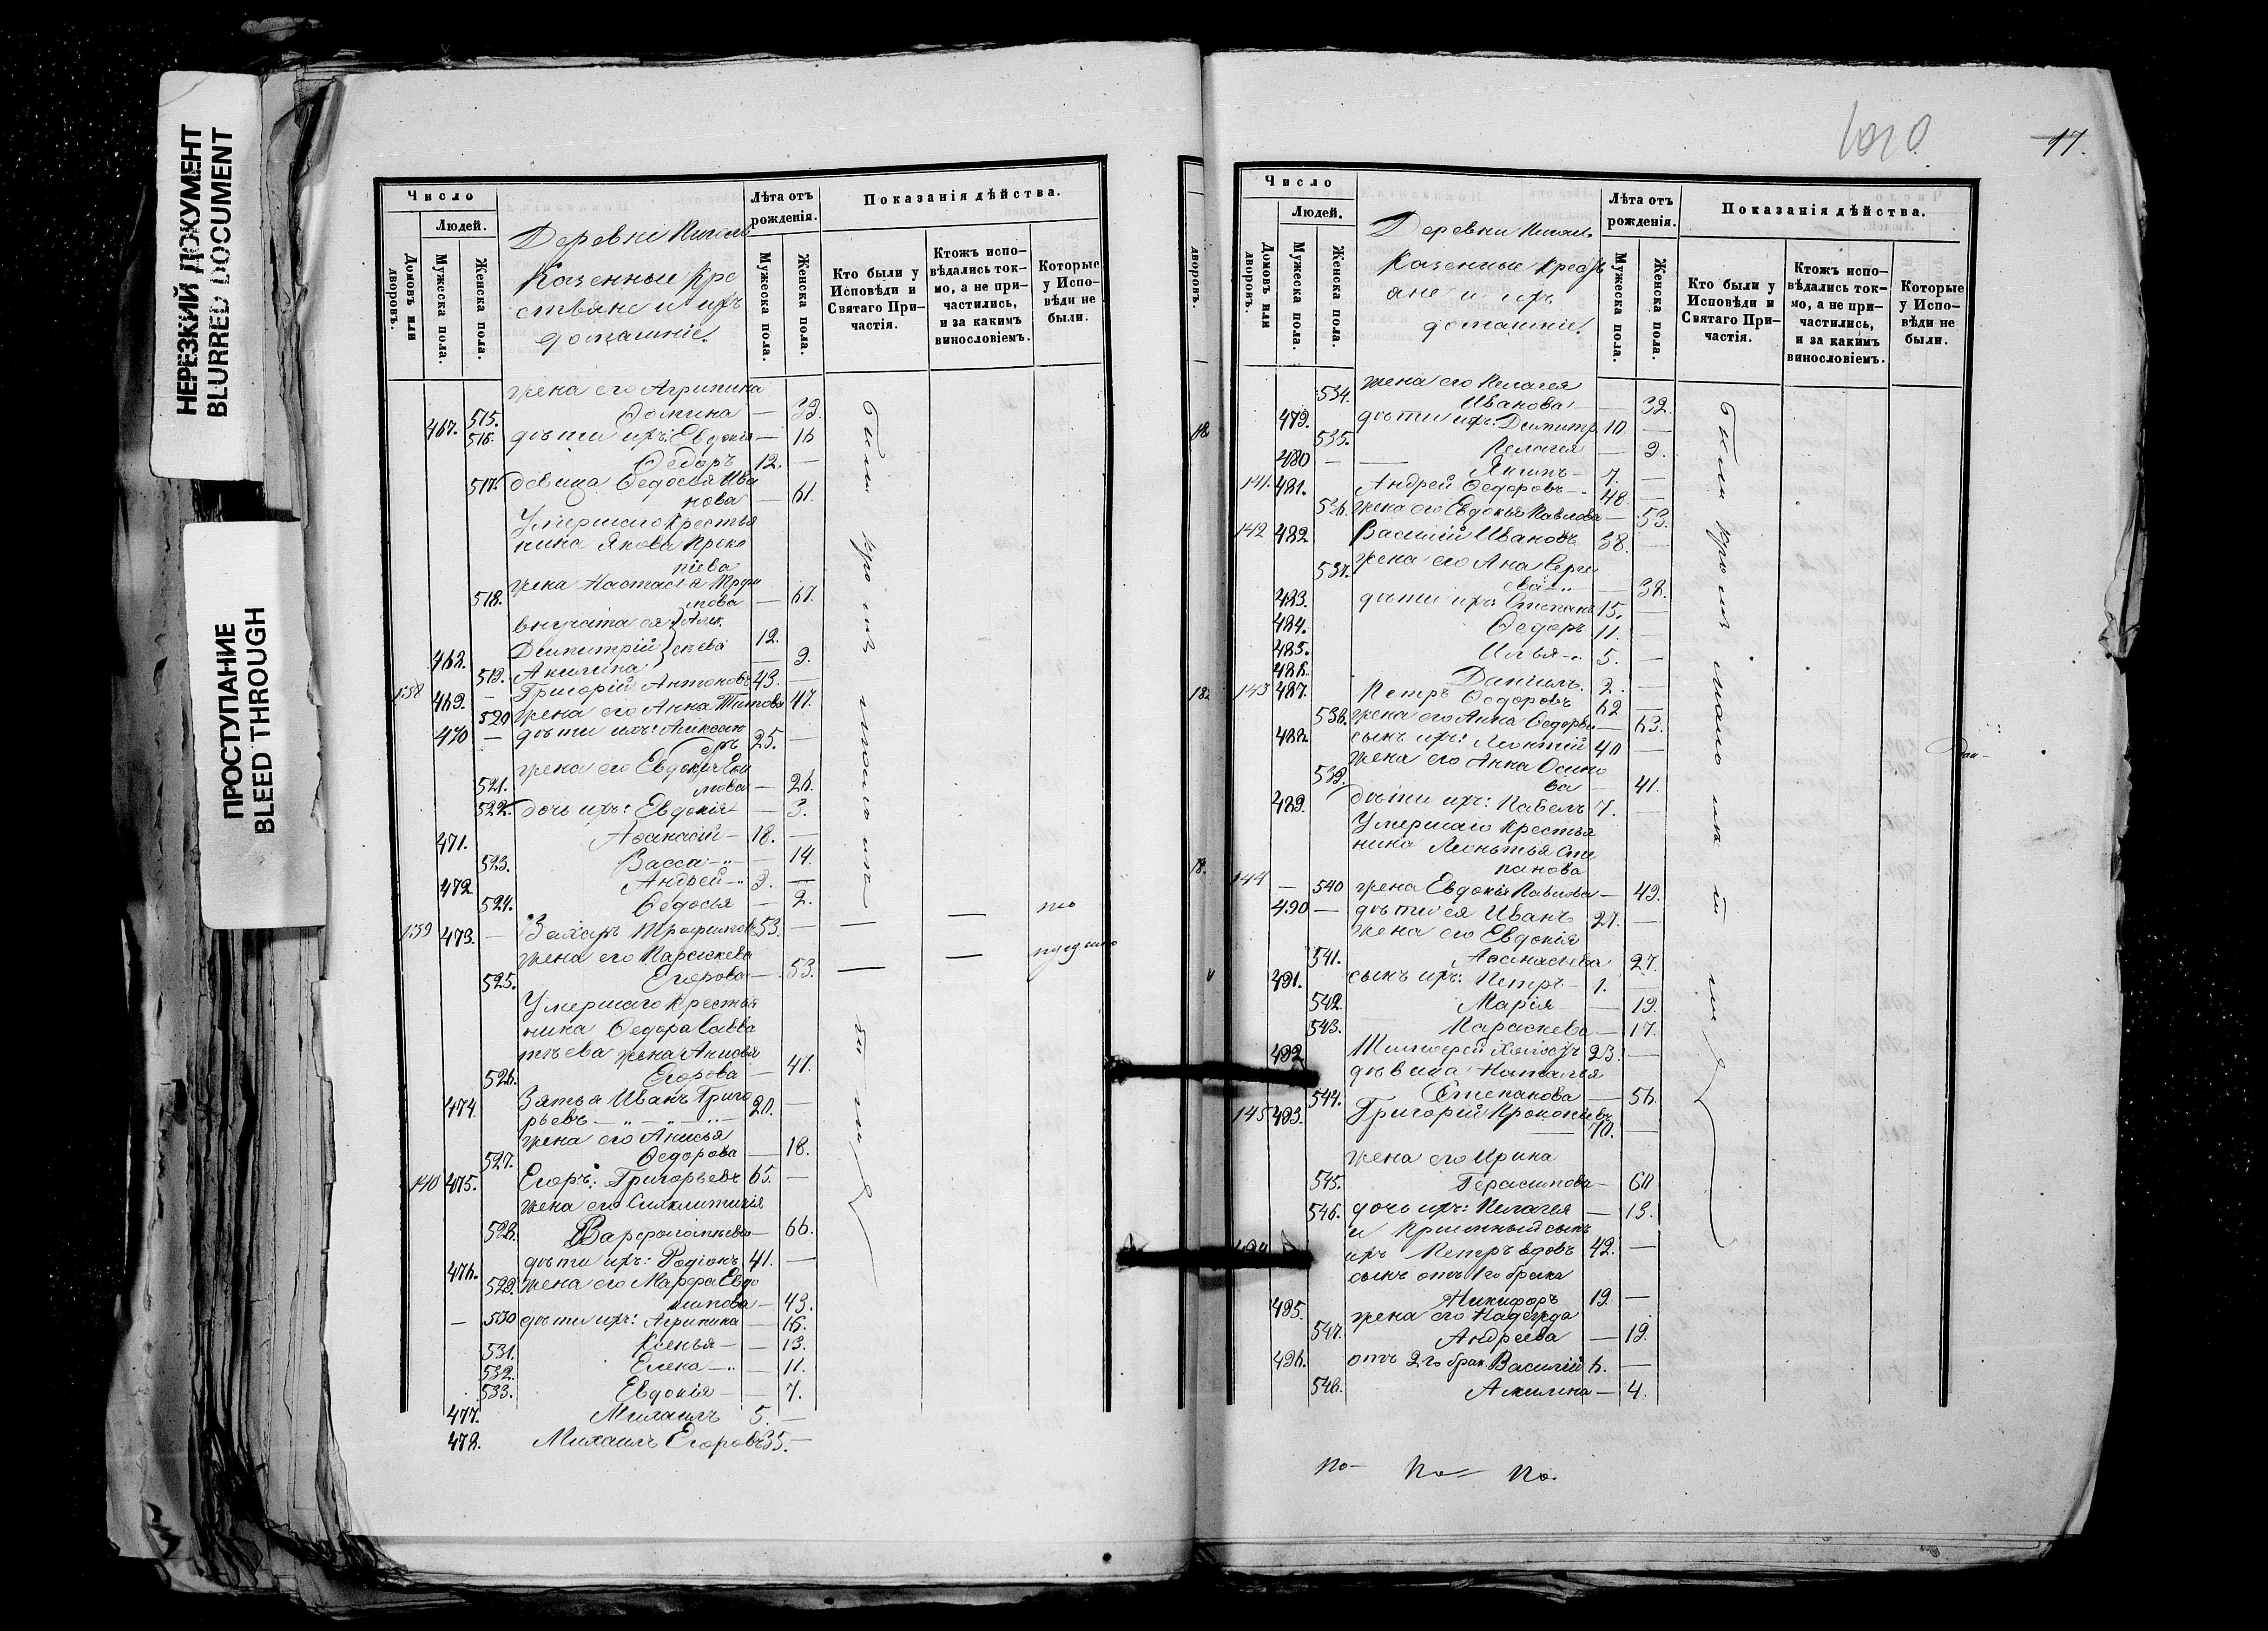 НЕРЕЗКИЙ ДОКУМЕНТ
BLURRED DOCUMENT
ПРОСТУПАНИЕ
BLEED THROUGH
Число
Людей.
Домовъ или дворовъ.
Мужеска пола.
Женска пола.
Деревни
Казенные кре
стьяне и ихъ
домашніе.
Лѣта отъ рожденія.
Мужеска пола.
Женска пола.
Показанія дѣйства.
Кто были у Исповѣди и Святаго При-частія.
Ктожъ испо-вѣдались ток-мо, а не при-частились, и за какимъ винословіемъ.
Которые у Испо-вѣди не были.
жена его Агрипина
515. Фомина — 39.
467. 516. дѣти ихъ: Евдокія — 16
Ѳедоръ 12. —
517. девица Ѳедосья Ива
нова — 61.
Умершаго крестья
нина Якова Проко
піева
жена Настасья Трфи
518. мова — 67.
внучата ея Алек.
468. Димитрій сѣева 12.
519. Акилина — 9.
138 469. — Григорій Антоновъ 43. —
520 жена его Анна Титова 47.
470 — дѣти ихъ: Александ
ръ 25. —
жена его Евдокія
521. — 26.
522. дочь ихъ: Евдокія — 3.
471. Аѳанасій — 18. —
523. Васса — 14.
472 Андрей 9. —
524. Ѳедосья — 2.
139 473. — Захаръ Трофимовъ 53. — — —
жена его Параскева
525. Егорова — 53. — —
Умершаго крестья
нина Ѳедора Савва
тѣева жена Анисья
526. Егорова — 47.
474. Зятья Иванъ Григо
рьевъ 20. —
жена его Анисья
527. Ѳедорова — 18.
140 475. Егоръ Григорьевъ 65. —
жена его Синклитикія
528. Варфоломѣева — 66.
476. дѣти ихъ: Родіонъ 41. —
529. жена его Марфа Евдо
кимова — 43.
— 530 дѣти ихъ: Агрипина — 16.
531. Ксенья — 13.
532. Елена — 11.
533. Евдокія — 7.
477. Михаилъ 5. —
478. Михаилъ Егоровъ 35. —
17.
Число
Людей.
Домовъ или дворовъ.
Мужеска пола.
Женска пола.
Деревни
Казенные крестъ
яне и ихъ
домашніе.
Лѣта отъ рожденія.
Мужеска пола.
Женска пола.
Показанія дѣйства.
Кто были у Исповѣди и Святаго При-частія.
Ктожъ испо-вѣдались ток-мо, а не при-частились, и за какимъ винословіемъ.
Которые у Испо-вѣди не были.
534. жена его Пелагея
Иванова — 32.
479. дѣти ихъ: Димитр. 10. —
535. Пелагея — 9.
480 — — Якимъ 7. —
141. 481. Андрей Ѳедоровъ 48. —
536. жена его Евдокья Павлова — 53.
142 482 Василій Ивановъ 38. —
537. жена его Ана Серге
ева — 38.
483. дѣти ихъ: Степанъ 15. —
484. Ѳедоръ 11. —
485. Илья 5. —
486. Данiилъ. 2. —
143 487. Петръ Ѳедоровъ 62 —
538. жена его Анна Ѳедоров. — 63.
488. сынъ ихъ: Леонтій 40 —
жена его Анна Осипо
539. ва — 41.
489. дѣти ихъ: Павелъ 7. —
Умершаго крестья
нина Леонтья Сте
панова
144 — 540 жена Евдокія Павлова — 49.
490 — дѣти ея Иванъ 27. —
жена его Евдокія
541. Аѳанасьева 27.
491. сынъ ихъ: Петръ 1. —
542. Марія — 19.
543. Параскева — 17.
492 Тимофей 23. —
дѣвица Наталья
544. Степанова — 56.
145 493. Григорій Прокопьевъ
— 70. —
жена его Ирина
545. Герасимова — 60
546. дочь ихъ: Пелагея — 13.
и Пріемный сынъ
494 ихъ Петръ вдовъ 42. —
сынъ отъ 1го брака
495. Никифоръ 19. —
жена его Надежда
547. Андреева — 19.
496. отъ 2го брак. Василій 6. —
548. Акилина — 4.